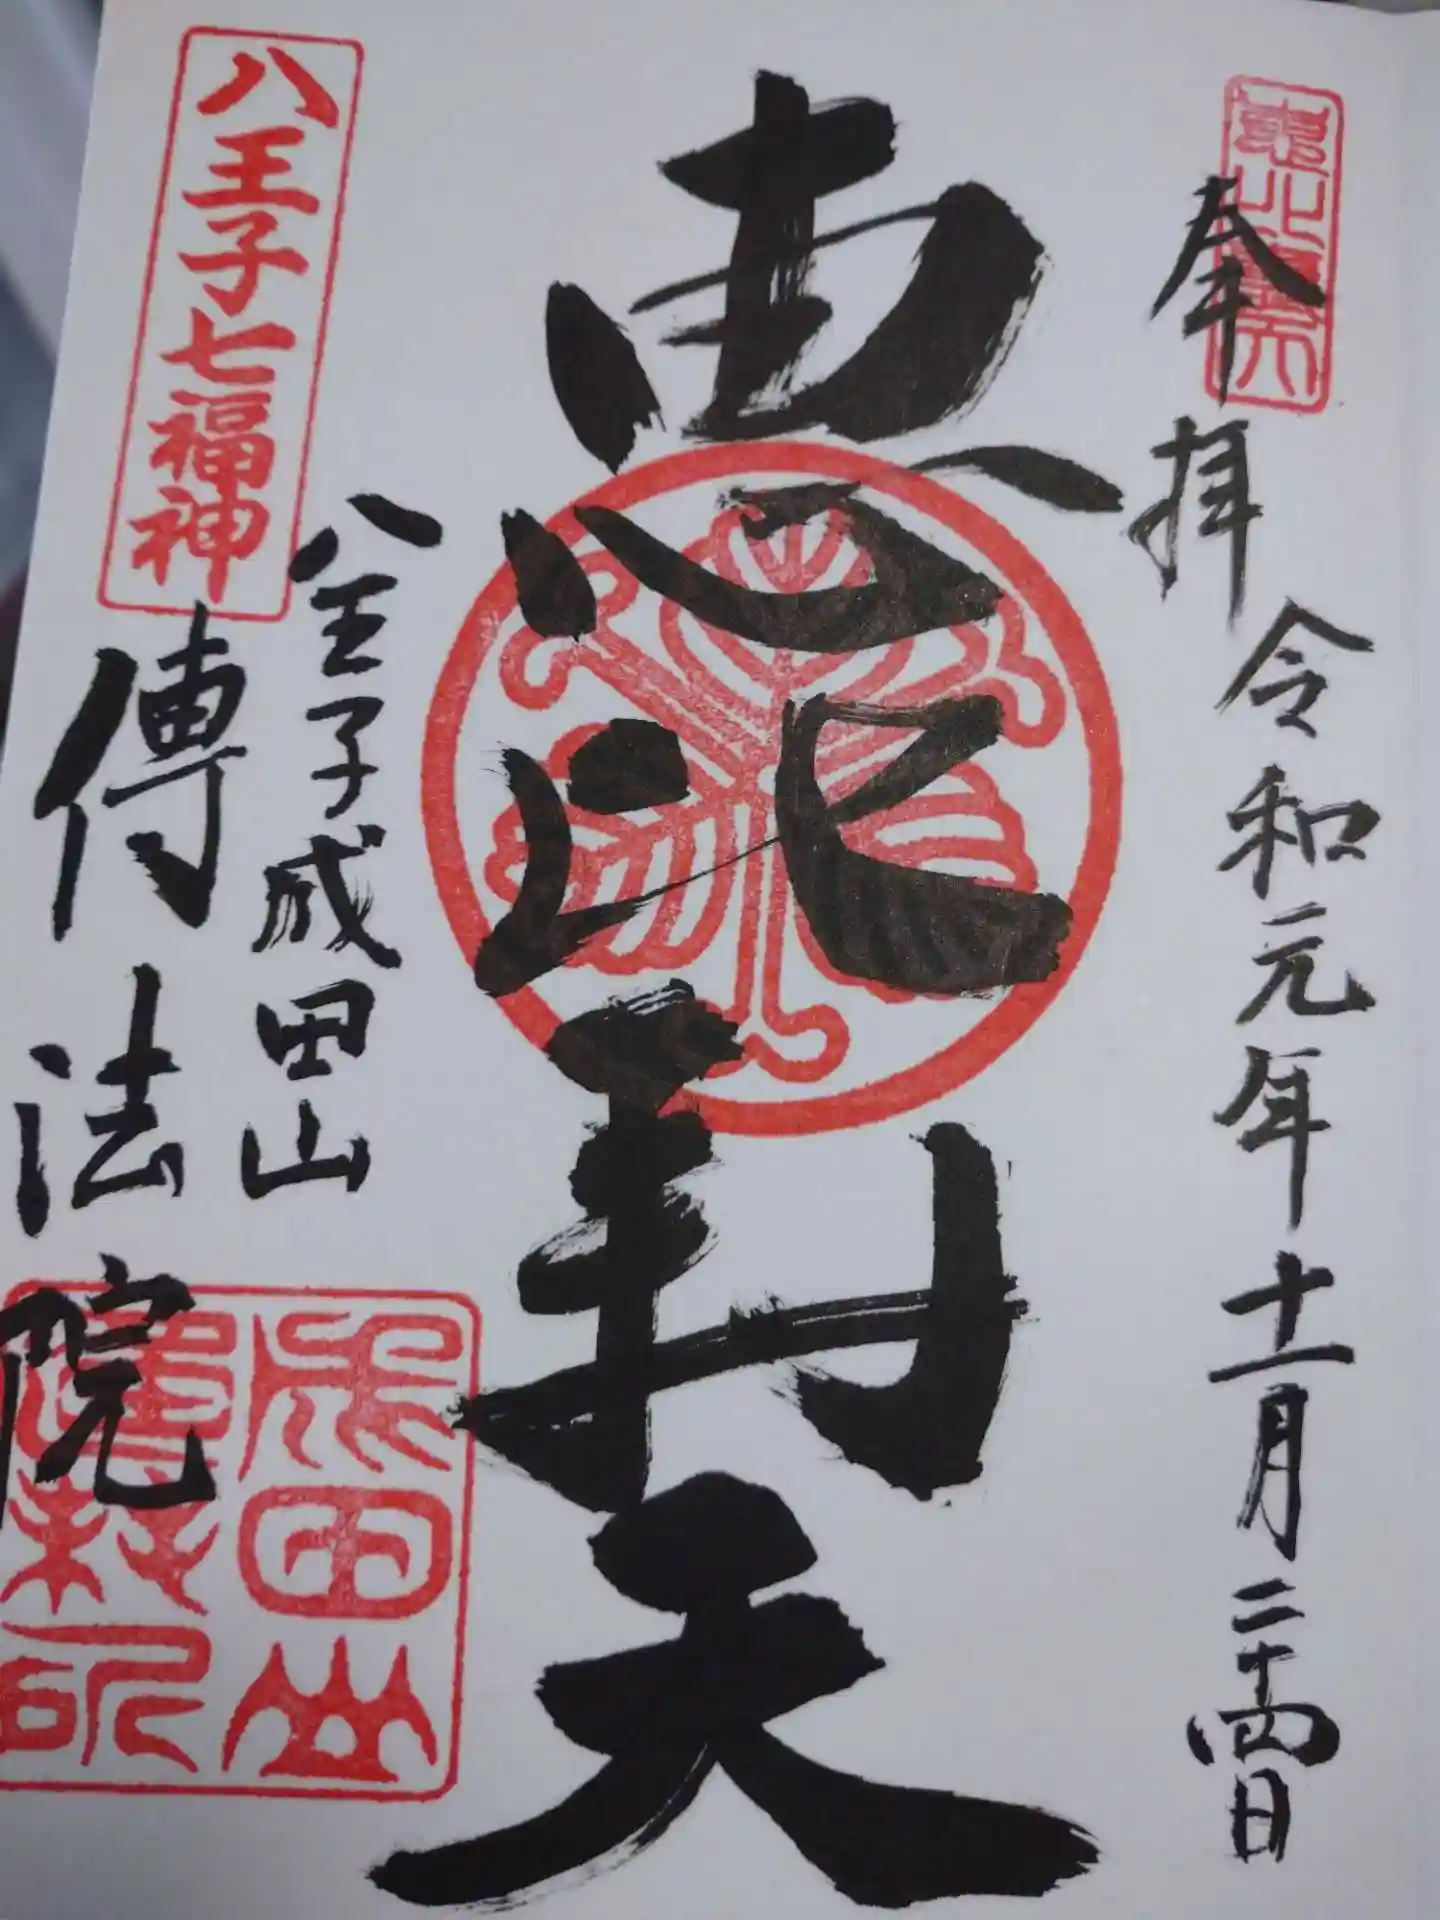 奉拝
令和元年十一月二十四日
恵比寿天
八王子七福神
八王子成田山
傳法院